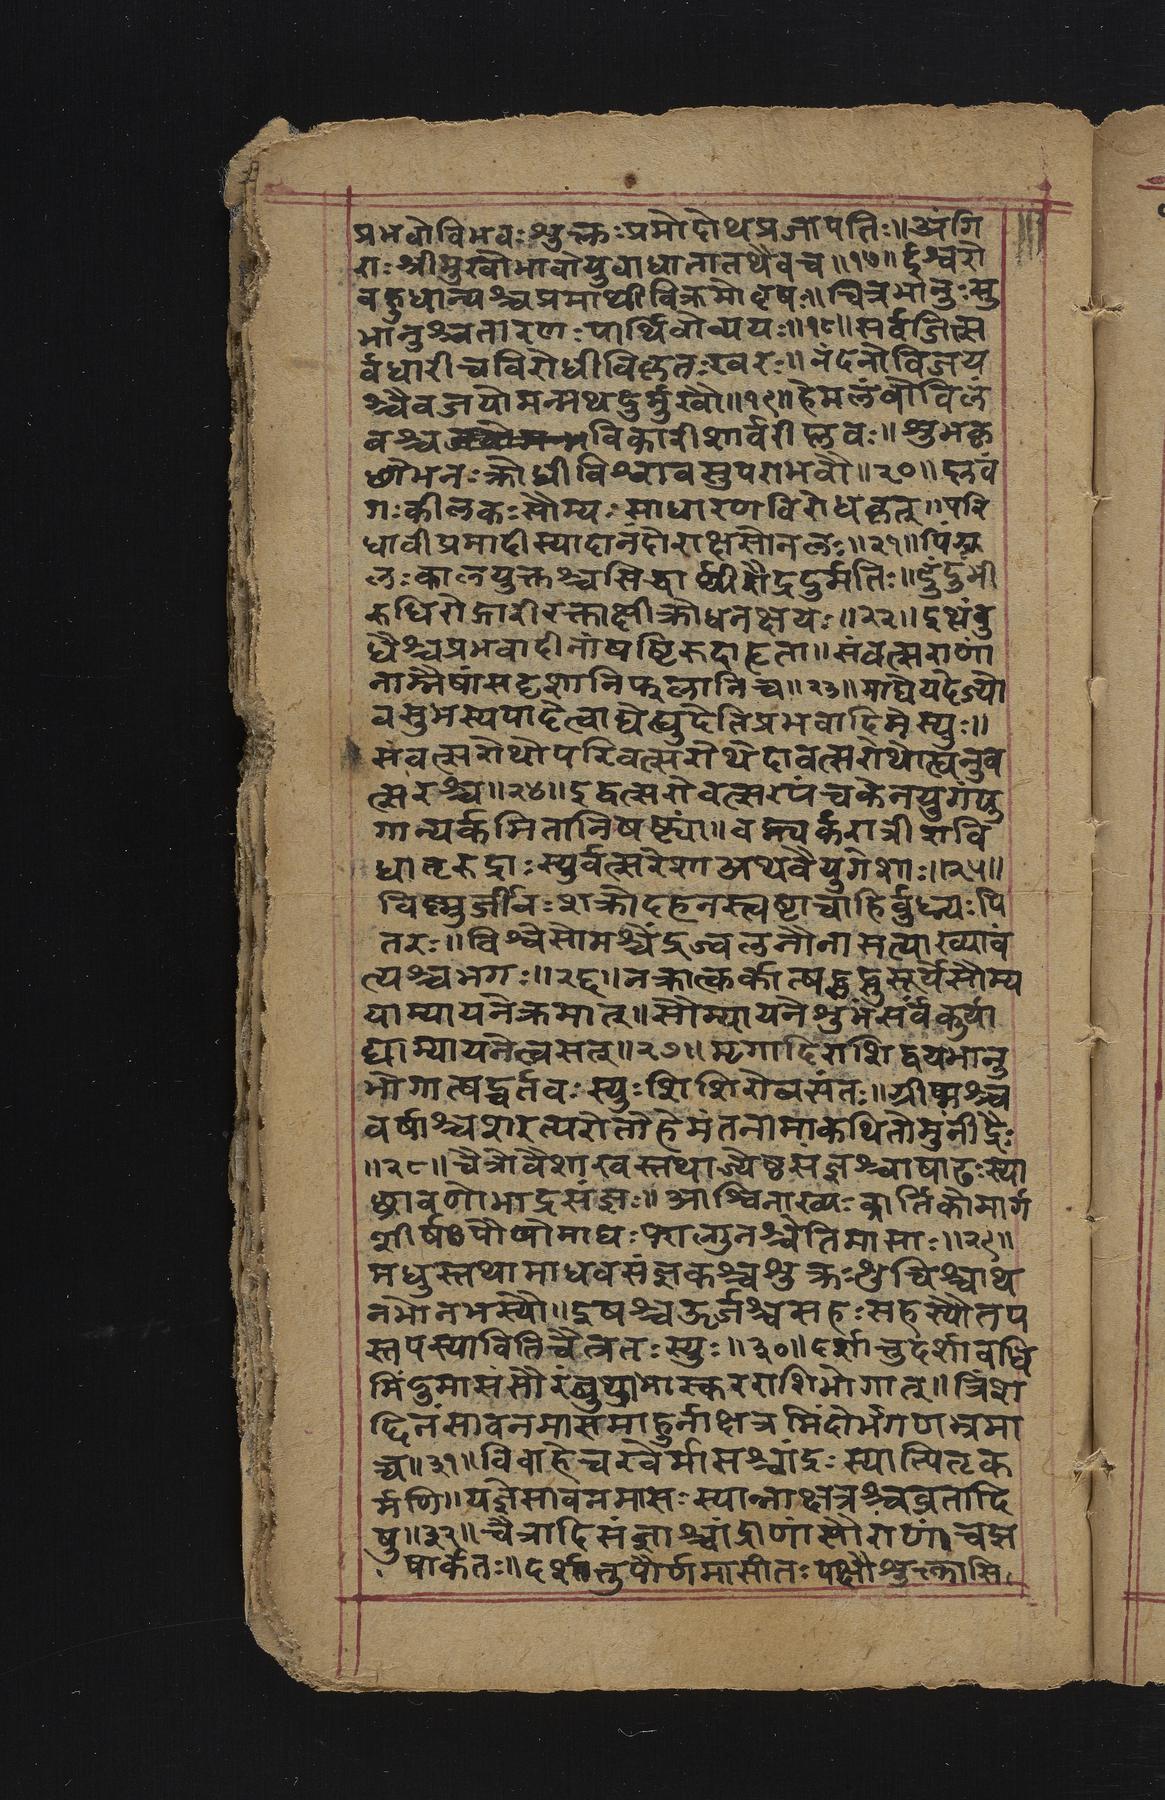 प्रभवोविभवःशुक्लःप्रमोदोथप्रजापतिः॥अंगि
राःश्रीमुखोभावोयुवाधातातथैवच॥१७॥ईश्वरो
बहुधान्यश्चप्रमाथीविक्रमोवृषः॥चित्रभानुःसु
भानुश्चतारणःपार्थिवोव्ययः॥१८॥सर्वजित्स
र्वधारीचविरोधीविकृतःखरः॥नंदनोविजय
श्चैवजयोमन्मथदुर्मुखौ॥१९॥हेमलंबोविलं
बश्चविकारीशार्वरीप्लवः॥शुभकृ
च्छोभनःक्रोधीविश्वावसुपराभवौ॥२०॥प्लवं
गःकीलकःसौम्यःसाधारणविरोधकृत्॥परि
धावीप्रमादीस्यादानंदोराक्षसोनलः॥२१॥पिंग
लःकालयुक्तश्चसिद्धार्थीरौद्रदुर्मतिः॥दुंदुभी
रुधिरोद्गारीरक्ताक्षीक्रोधनक्षयः॥२२॥इत्थंबु
धैश्चप्रभवादीनांषष्टिरुदाहृता॥संवत्सराणां
नाम्नैषांसदृशानिफलानिच॥२३॥माघेयदेज्यो
वसुभस्यपादेत्वाद्येत्युदेतिप्रभवादिमेस्युः॥
संवत्सरोथोपरिवत्सरोथेदावत्सरोथोत्यनुव
त्सरश्च॥२४॥इद्वत्सरोवत्सरपंचकेनयुगंयु
गान्यर्कमितानिषष्ट्यां॥वह्न्यर्करात्रीशवि
धातृरुद्राःस्युर्वत्सरेशाअथवैयुगेशाः॥२५॥
विष्णुर्जीवःशक्रोदहनस्त्वष्टाचाहिर्बुध्न्यःपि
तरः॥विश्वेसोमश्चेंद्रज्वलनौनासत्याख्यावं
त्यश्चभगः॥२६॥नक्रात्कर्कात्षट्सुसूर्येसौम्य
याम्यायनेक्रमात्॥सौम्यायनेशुभंसर्वंकुर्या
द्याम्यायनेत्वसत्॥२७॥मृगादिराशिद्वयभानु
भोगात्षट्चर्तवःस्युःशिशिरोवसंतः॥ग्रीष्मश्च
वर्षाश्चशरत्परोतोहेमंतनामाकथितोमुनींद्रैः
॥२८॥चैत्रोवैशाखस्तथाज्यैष्ठसंज्ञश्चाषाढःस्या
च्छ्रावणोभाद्रसंज्ञः॥आश्विनाख्यःकार्तिकोमार्ग
शीर्षःपौषोमाघःफाल्गुनश्चेतिमासाः॥२९॥
मधुस्तथामाधवसंज्ञकश्चशुक्रःशुचिश्चाथ
नभोनभस्यौ॥इषश्चऊर्जश्चसहःसहस्यौतप
स्तपस्यावितिचैत्रतःस्युः॥३०॥दर्शात्तुदर्शावधि
मिंदुमासंसौरंभास्करराशिभोगात्॥त्रिंश
द्दिनंसावनमासमाहुर्नाक्षत्रमिंदोर्भगणभ्रमा
च्च॥३१॥विवाहेचरवेर्मासश्चांद्रःस्यात्पितृक
र्मणि॥यज्ञेसावनमासःस्यान्नाक्षत्रश्चव्रतादि
षु॥३२॥चैत्रादिसंज्ञाश्चांद्राणांसौराणांचझ
षार्कतः॥दर्शात्तुपौर्णमासीतःपक्षौशुक्लासि